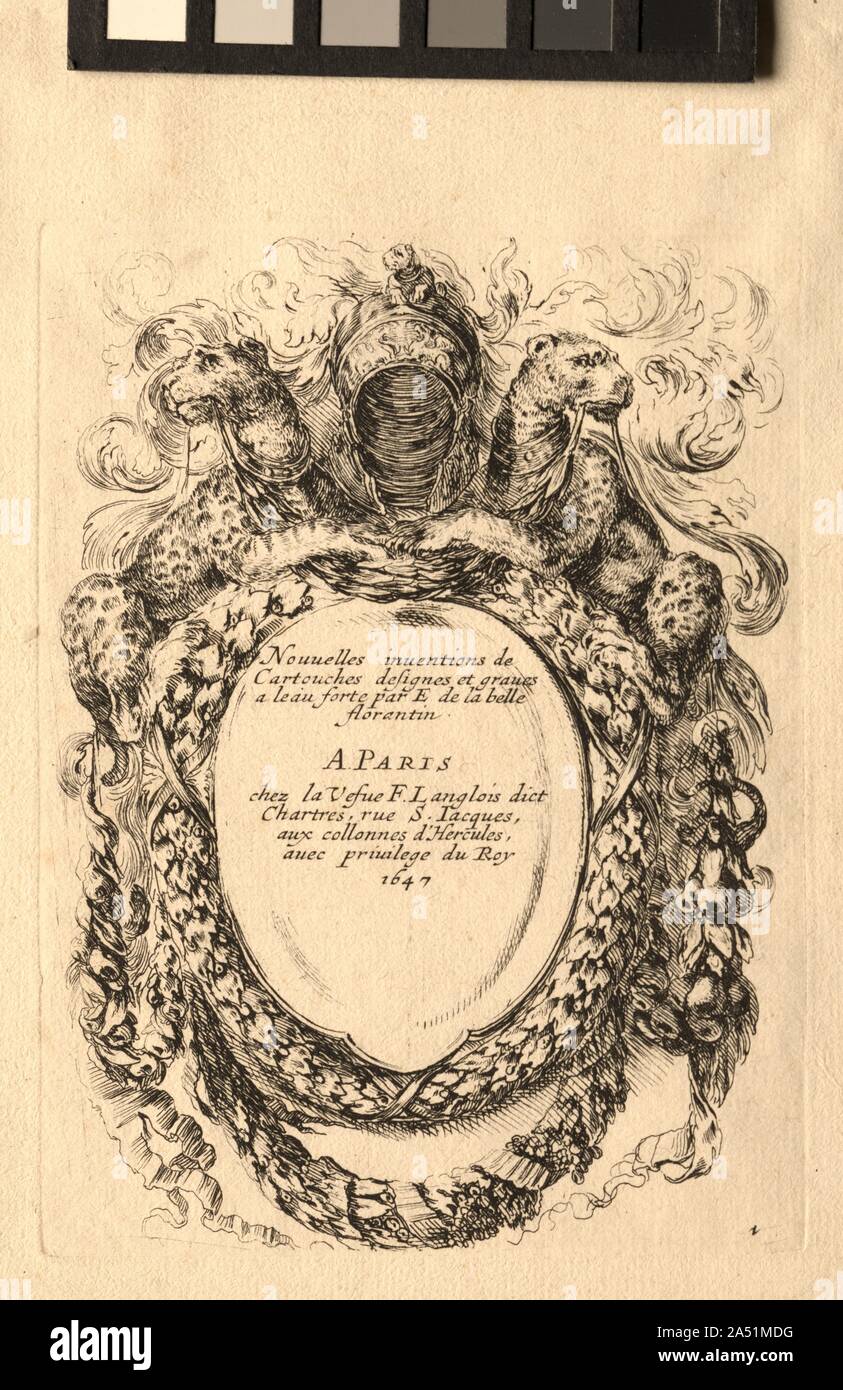 Nouuelles inuentions de
Cartouches designes et graues
a leau forte par E de la belle
florantin.
A. PARIS
chez la Vefue F. Langlois dict
Chartres, rue S. Iacques,
aux collonnes d'Hercules,
auec priuilege du Roy
1647
1
a alamy
alamy
Image ID: 2A51MDG
www.alamy.com